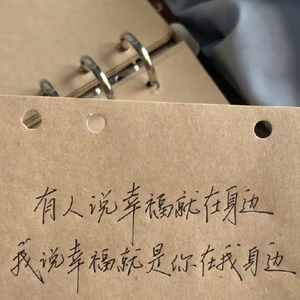 有人说幸福就在身边
我说幸福就是你在我身边